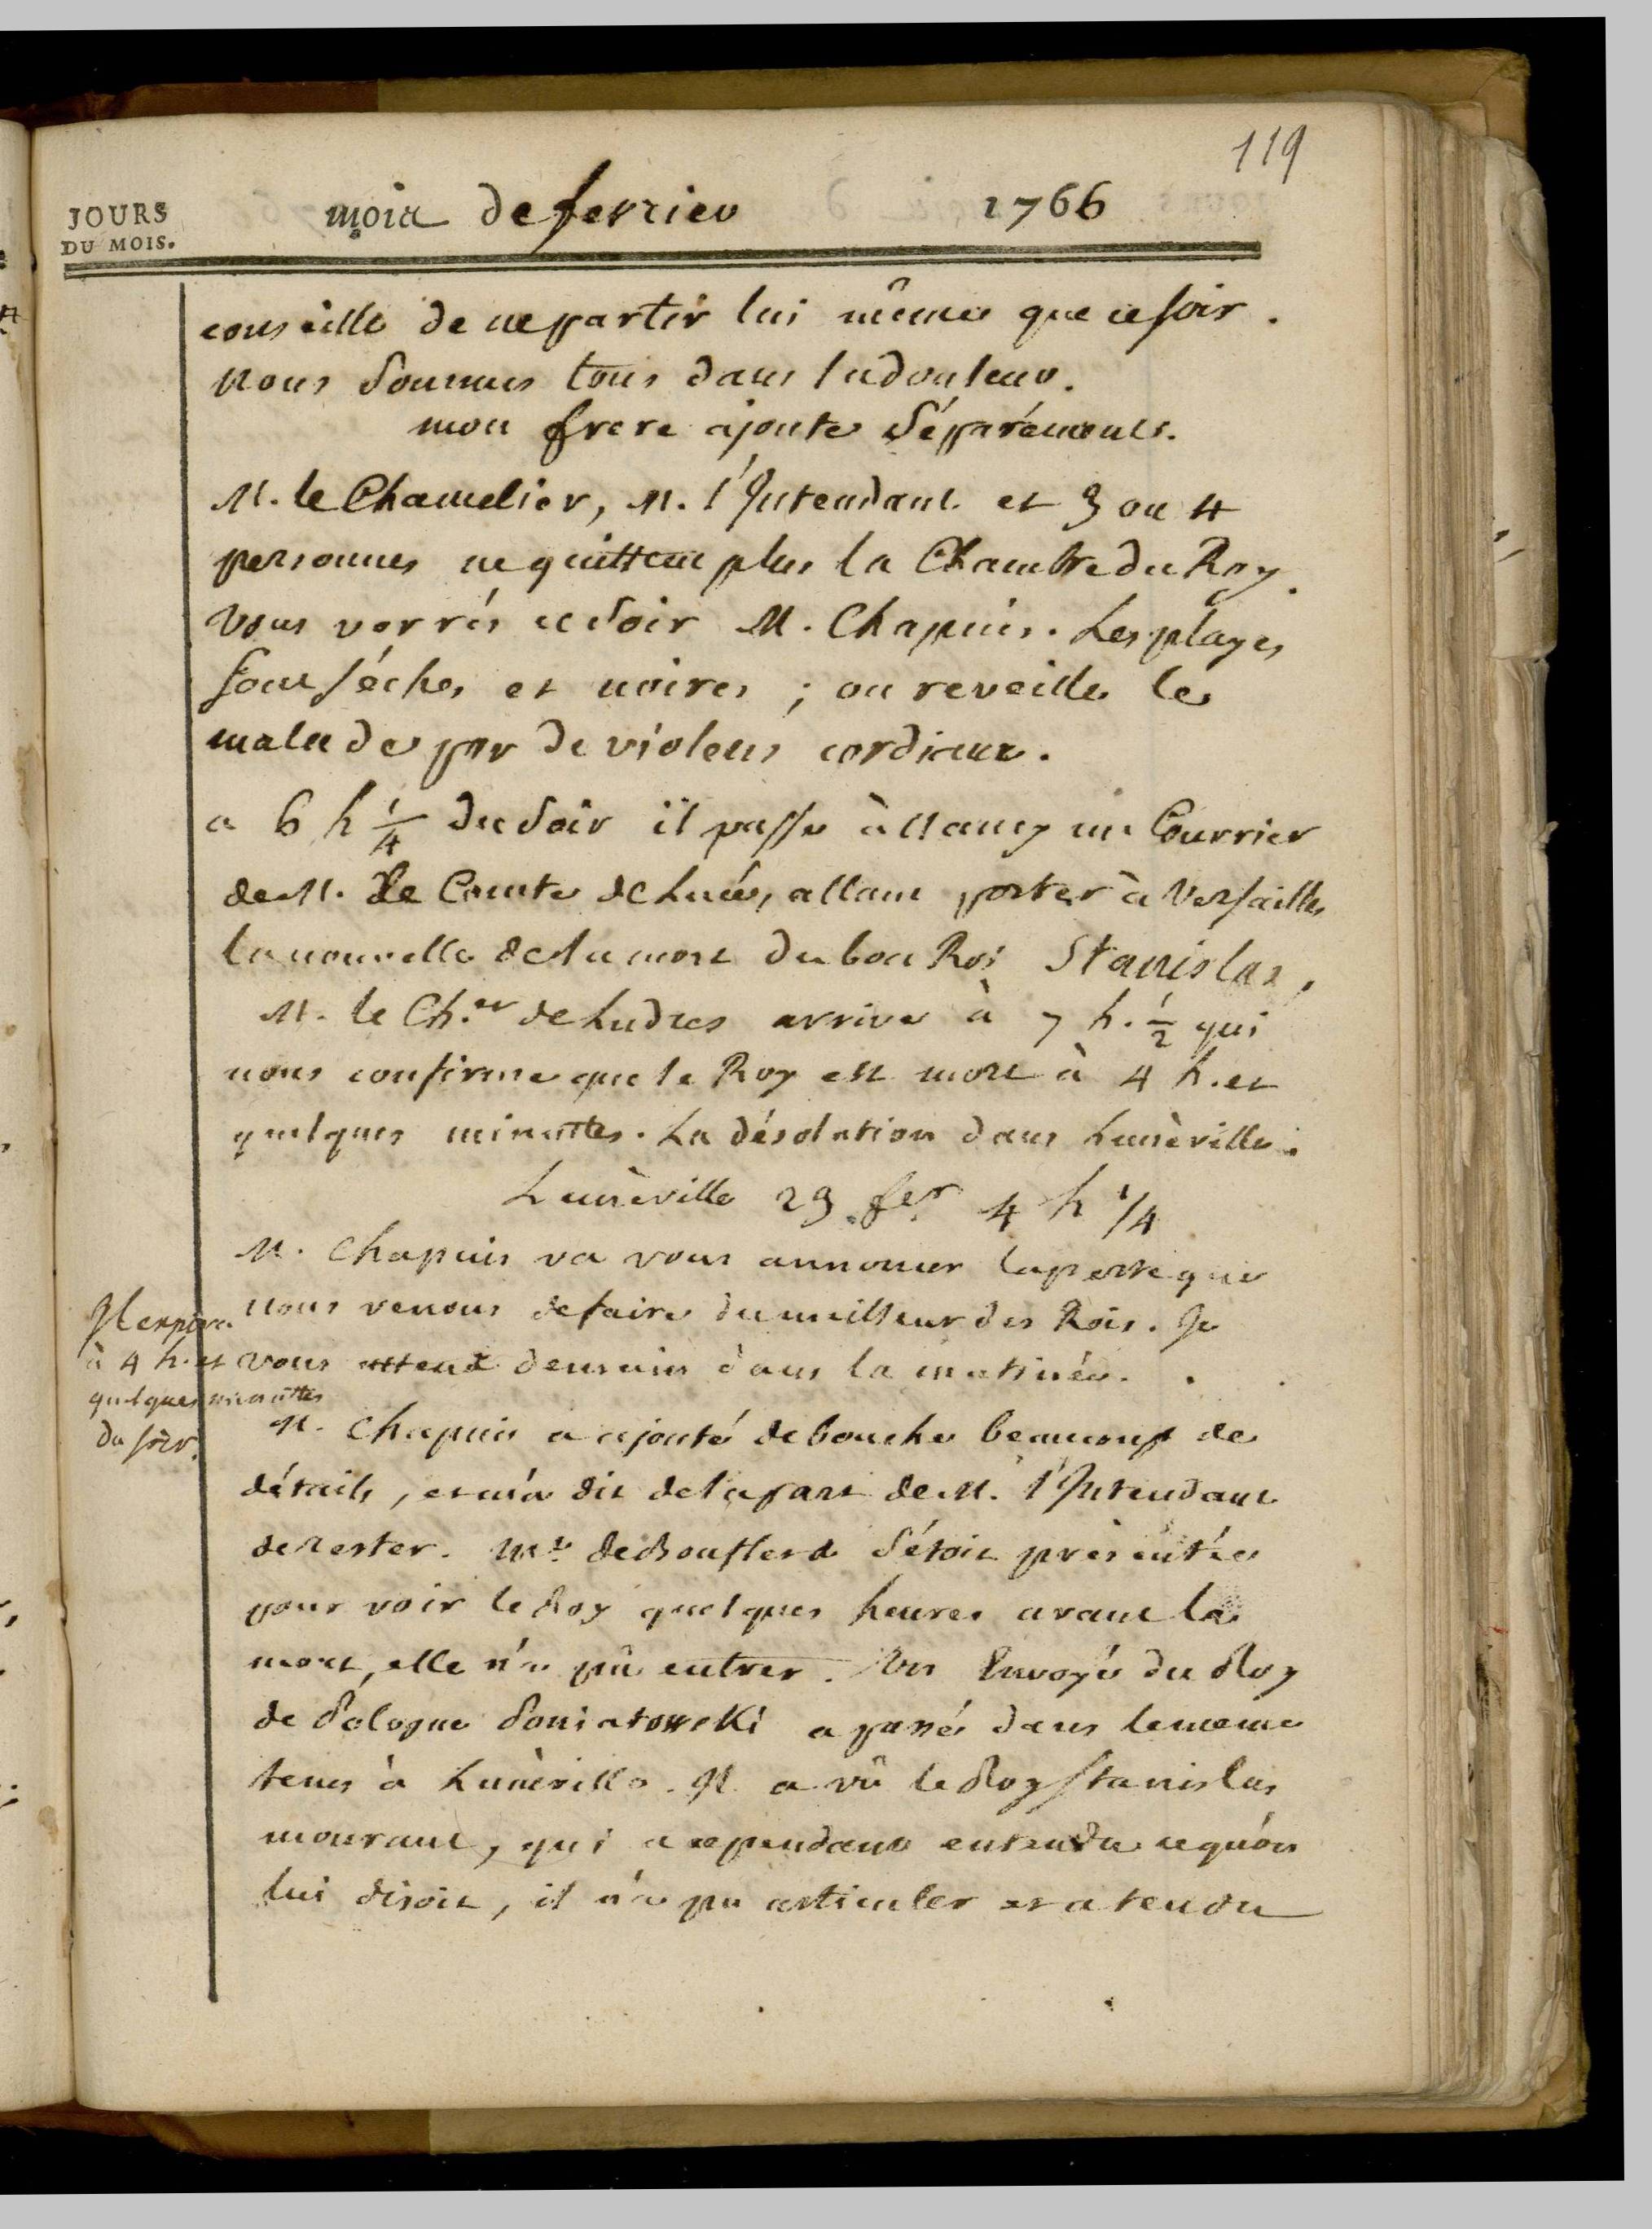 119
JOURS
DU MOIS.
mois de fevrier 1766
conseille de ne partir lui même que ce soir.
nous sommes tous dans la douleur.
mon frere ajoute séparéments.
M. le Chancelier, M. l'Intendant et 3 ou 4
personnes ne quittent plus la Chambre du Roy.
vous verrés ce soir M. Chapuis. Les playes
sont séches et noires ; on reveille le
malade par de violens cordiaux.
a 6 h 1/4 du soir il passe à Nancy un Courrier
de M. Le Comte de Lucé, allant porter à Versailles
la nouvelle de la mort du bon Roi Stanislas,
M. le Ch.er de Ludres arrive à 7 h. 1/2 qui
nous confirme que le Roy est mort à 4 h. et
quelques minuttes. La désolation dans Lunèville.
Lunèville 23 fer 4 h 1/4
M. Chapuis va vous annoncer la perte que
nous venons de faire du meilleur des Rois. Je
vous attend demain dans la matinée.
Il expira
à 4 h. et
quelques minuttes
du soir.
M. Chapuis a ajouté de bouche beaucoup de
détails, et m'a dit de la part de M. l'Intendant
de rester. Me de Bouflers s'étoit présentée
pour voir le Roy quelques heures avant la
mort, elle n'a pû entrer. Un Envoyé du Roy
de Pologne Poniatowski a passé dans le meme
tems à Lunèville. Il a vû le Roy Stanislas
mourant, qui a cependant entendu ce qu'on
lui disoit, il n'a pu articuler et a tendu